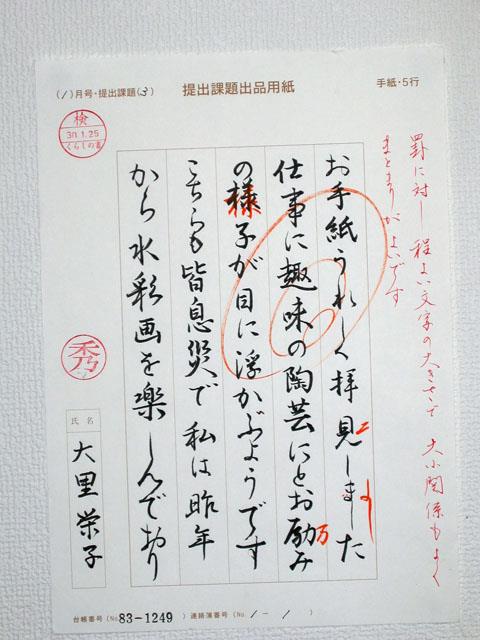 (1)月号・提出課題(3)
提出課題出品用紙
手紙・5行
検
30.1.25
くらしの書
罫に対し程よい文字の大きさで大小関係もよく
まとまりがよいです
お手紙うれしく拝見しました
仕事に趣味の陶芸にとお励み
の様子が目に浮かぶようです
こちらも皆息災で私は昨年
から水彩画を楽しんでおり
万
秀
氏名
大里栄子
台帳番号(No83-1249)連絡簿番号(No.1-1)